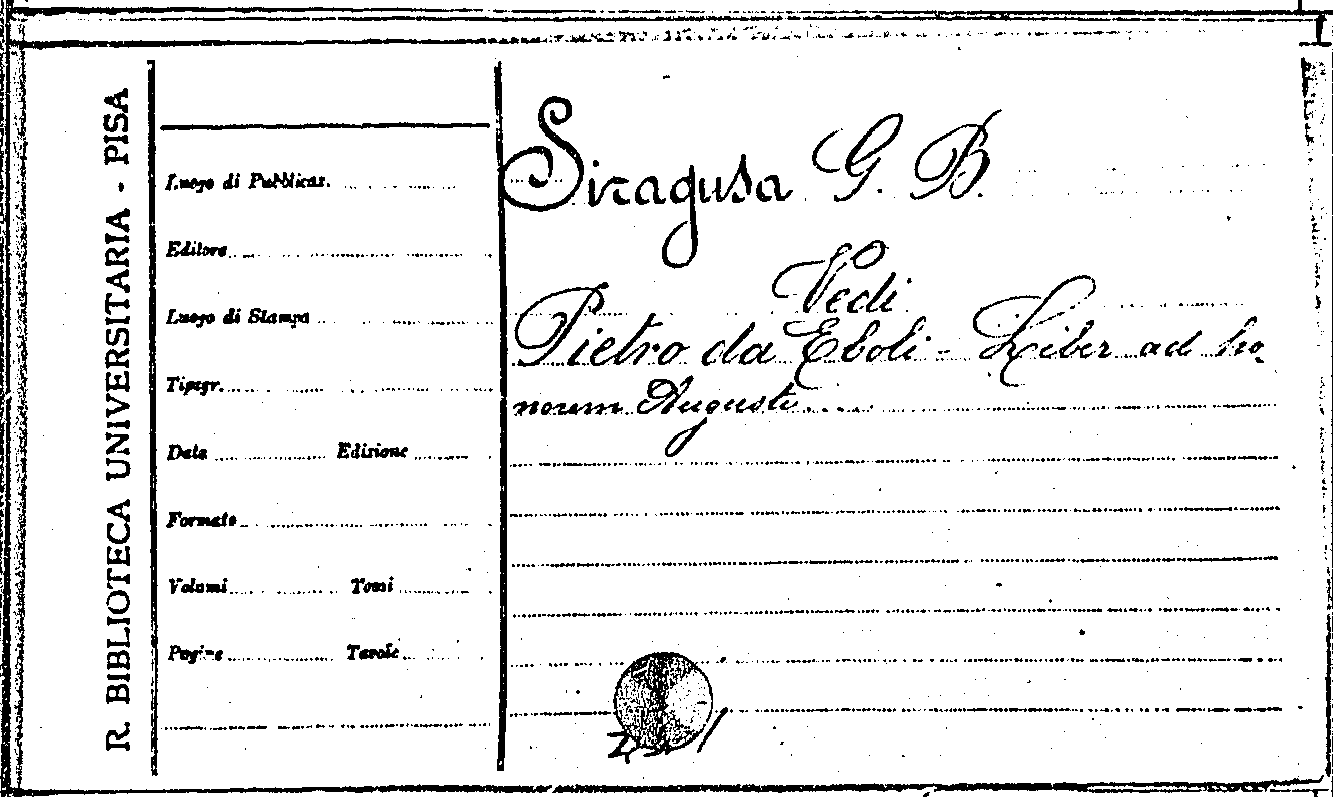 R. BIBLIOTECA UNIVERSITARIA - PISA
Luogo di Pubblicaz.
Editore
Luogo di Stampa
Tipogr.
Data Edizione
Formato
Volumi Tomi
Pagine Tavole
Siragusa G. B.
Vedi
Pietro da Eboli - Liber ad ho-
norem Augusti